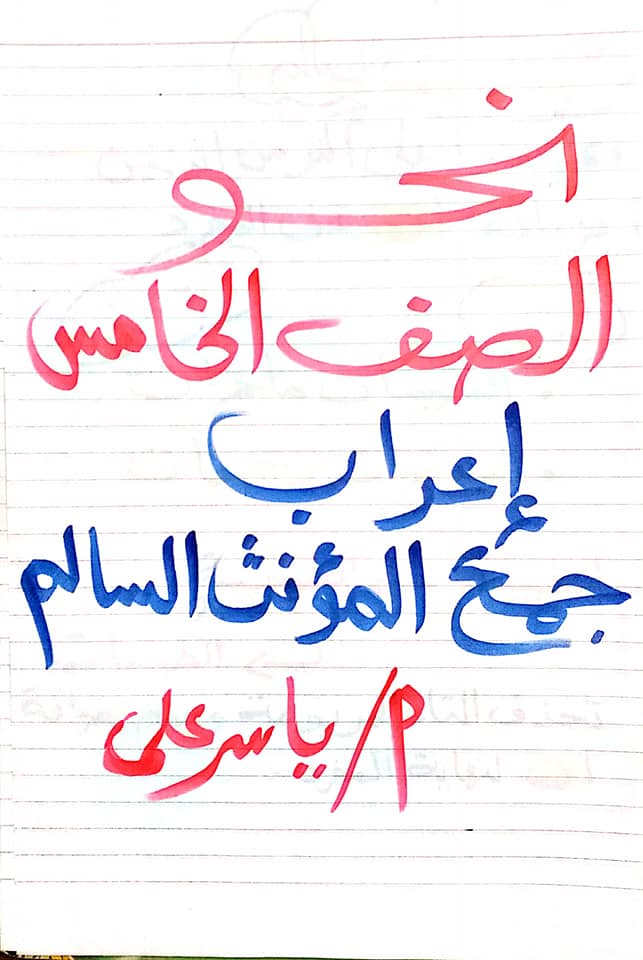 نحو
الصف الخامس
إعراب
جمع المؤنث السالم
م/ ياسر على